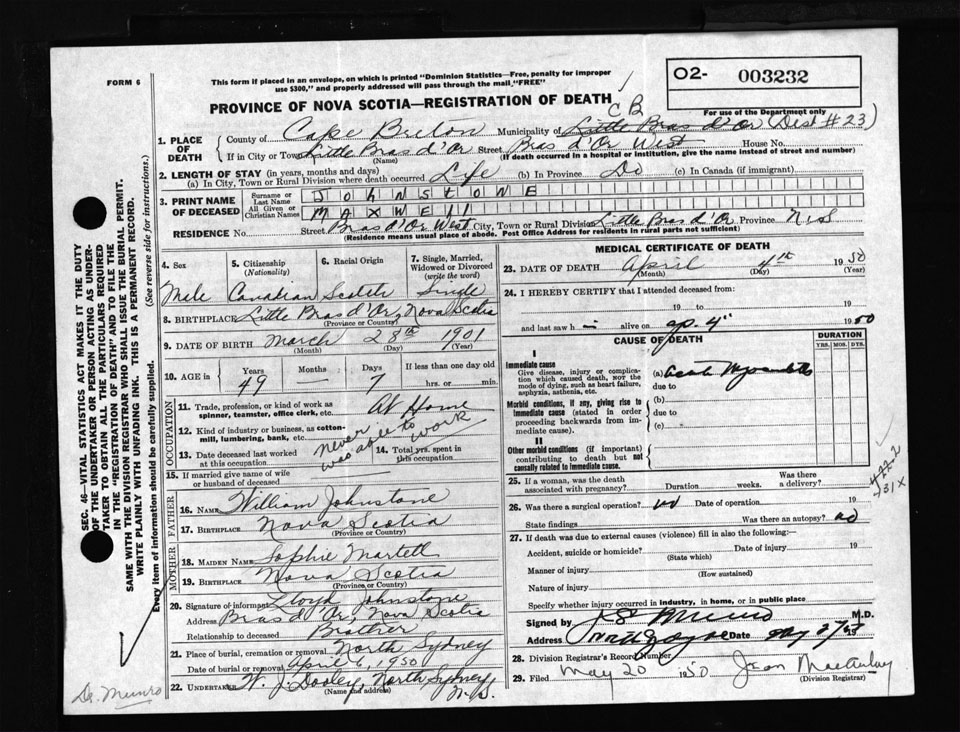 FORM 6
This form if placed in an envelope, on which is printed "Dominion Statistics—Free, penalty for improper
use $300," and properly addressed will pass through the mail "FREE"
O2- 003232
For use of the Department only
PROVINCE OF NOVA SCOTIA—REGISTRATION OF DEATH
C B
1. PLACE OF DEATH
County of Cape Breton Municipality of Little Bras d'Or (Dist #23)
If in City or Town Little Bras d'Or Street Bras d'Or West House No.
(Name) (If death occurred in a hospital or institution, give the name instead of street and number)
2. LENGTH OF STAY (in years, months and days)
(a) In City, Town or Rural Division where death occurred Life (b) In Province Do (c) In Canada (if immigrant)
3. PRINT NAME OF DECEASED
Surname or Last Name JOHNSTONE
All Given or Christian Names MAXWELL
RESIDENCE No. Street Bras d'Or West City, Town or Rural Division Little Bras d'Or Province N.S
(Residence means usual place of abode. Post Office Address for residents in rural parts not sufficient)
4. Sex
Male
5. Citizenship
(Nationality)
Canadian
6. Racial Origin
Scotch
7. Single, Married,
Widowed or Divorced
(write the word)
Single
8. BIRTHPLACE Little Bras d'Or, Nova Scotia
(Province or Country)
9. DATE OF BIRTH March 28th 1901
(Month) (Day) (Year)
10. AGE in
Years Months Days If less than one day old
49 — 7 hrs. or min.
OCCUPATION
11. Trade, profession, or kind of work as
spinner, teamster, office clerk, etc. At Home
12. Kind of industry or business, as cotton-
mill, lumbering, bank, etc.
never was able to work
13. Date deceased last worked
at this occupation
14. Total yrs. spent in
this occupation
15. If married give name of wife
or husband of deceased
FATHER
16. Name William Johnstone
17. Birthplace Nova Scotia
(Province or Country)
MOTHER
18. Maiden Name Sophie Martell
19. Birthplace Nova Scotia
(Province or Country)
20. Signature of informant Lloyd Johnstone
Address Bras d'Or, Nova Scotia
Relationship to deceased Brother
21. Place of burial, cremation or removal North Sydney
Date of burial or removal April 6, 1950
22. Undertaker W. J. Dooley, North Sydney
(Name and address) N.S.
MEDICAL CERTIFICATE OF DEATH
23. DATE OF DEATH April 4th 1950
(Month) (Day) (Year)
24. I HEREBY CERTIFY that I attended deceased from:
19 to 19
and last saw h alive on ap. 4" 1950
CAUSE OF DEATH
DURATION
YRS. MOS. DYS.
I
Immediate cause
Give disease, injury or complica-
tion which caused death, NOT the
mode of dying, such as heart failure,
asphyxia, asthenia, etc.
(a)
due to
Morbid conditions, if any, giving rise to
immediate cause (stated in order
proceeding backwards from im-
mediate cause).
(b)
due to
(c)
II
Other morbid conditions (if important)
contributing to death but not
causally related to immediate cause.
25. If a woman, was the death
associated with pregnancy? Duration weeks. Was there
a delivery?
422-2
431X
26. Was there a surgical operation? no Date of operation 19
State findings Was there an autopsy? no
27. If death was due to external causes (violence) fill in also the following:
Accident, suicide or homicide? Date of injury 19
(State which)
Manner of injury
(How sustained)
Nature of injury
Specify whether injury occurred in industry, in home, or in public place
Signed by Munro M.D.
Address Date
28. Division Registrar's Record Number
29. Filed May 20 1950 Jean
(Division Registrar)
SEC. 46—VITAL STATISTICS ACT MAKES IT THE DUTY
OF THE UNDERTAKER OR PERSON ACTING AS UNDER-
TAKER TO OBTAIN ALL THE PARTICULARS REQUIRED
IN THE "REGISTRATION OF DEATH" AND TO FILE THE
SAME WITH THE DIVISION REGISTRAR WHO SHALL ISSUE THE BURIAL PERMIT.
WRITE PLAINLY WITH UNFADING INK. THIS IS A PERMANENT RECORD.
Every item of information should be carefully supplied. (See reverse side for instructions.)
Dr. Munro